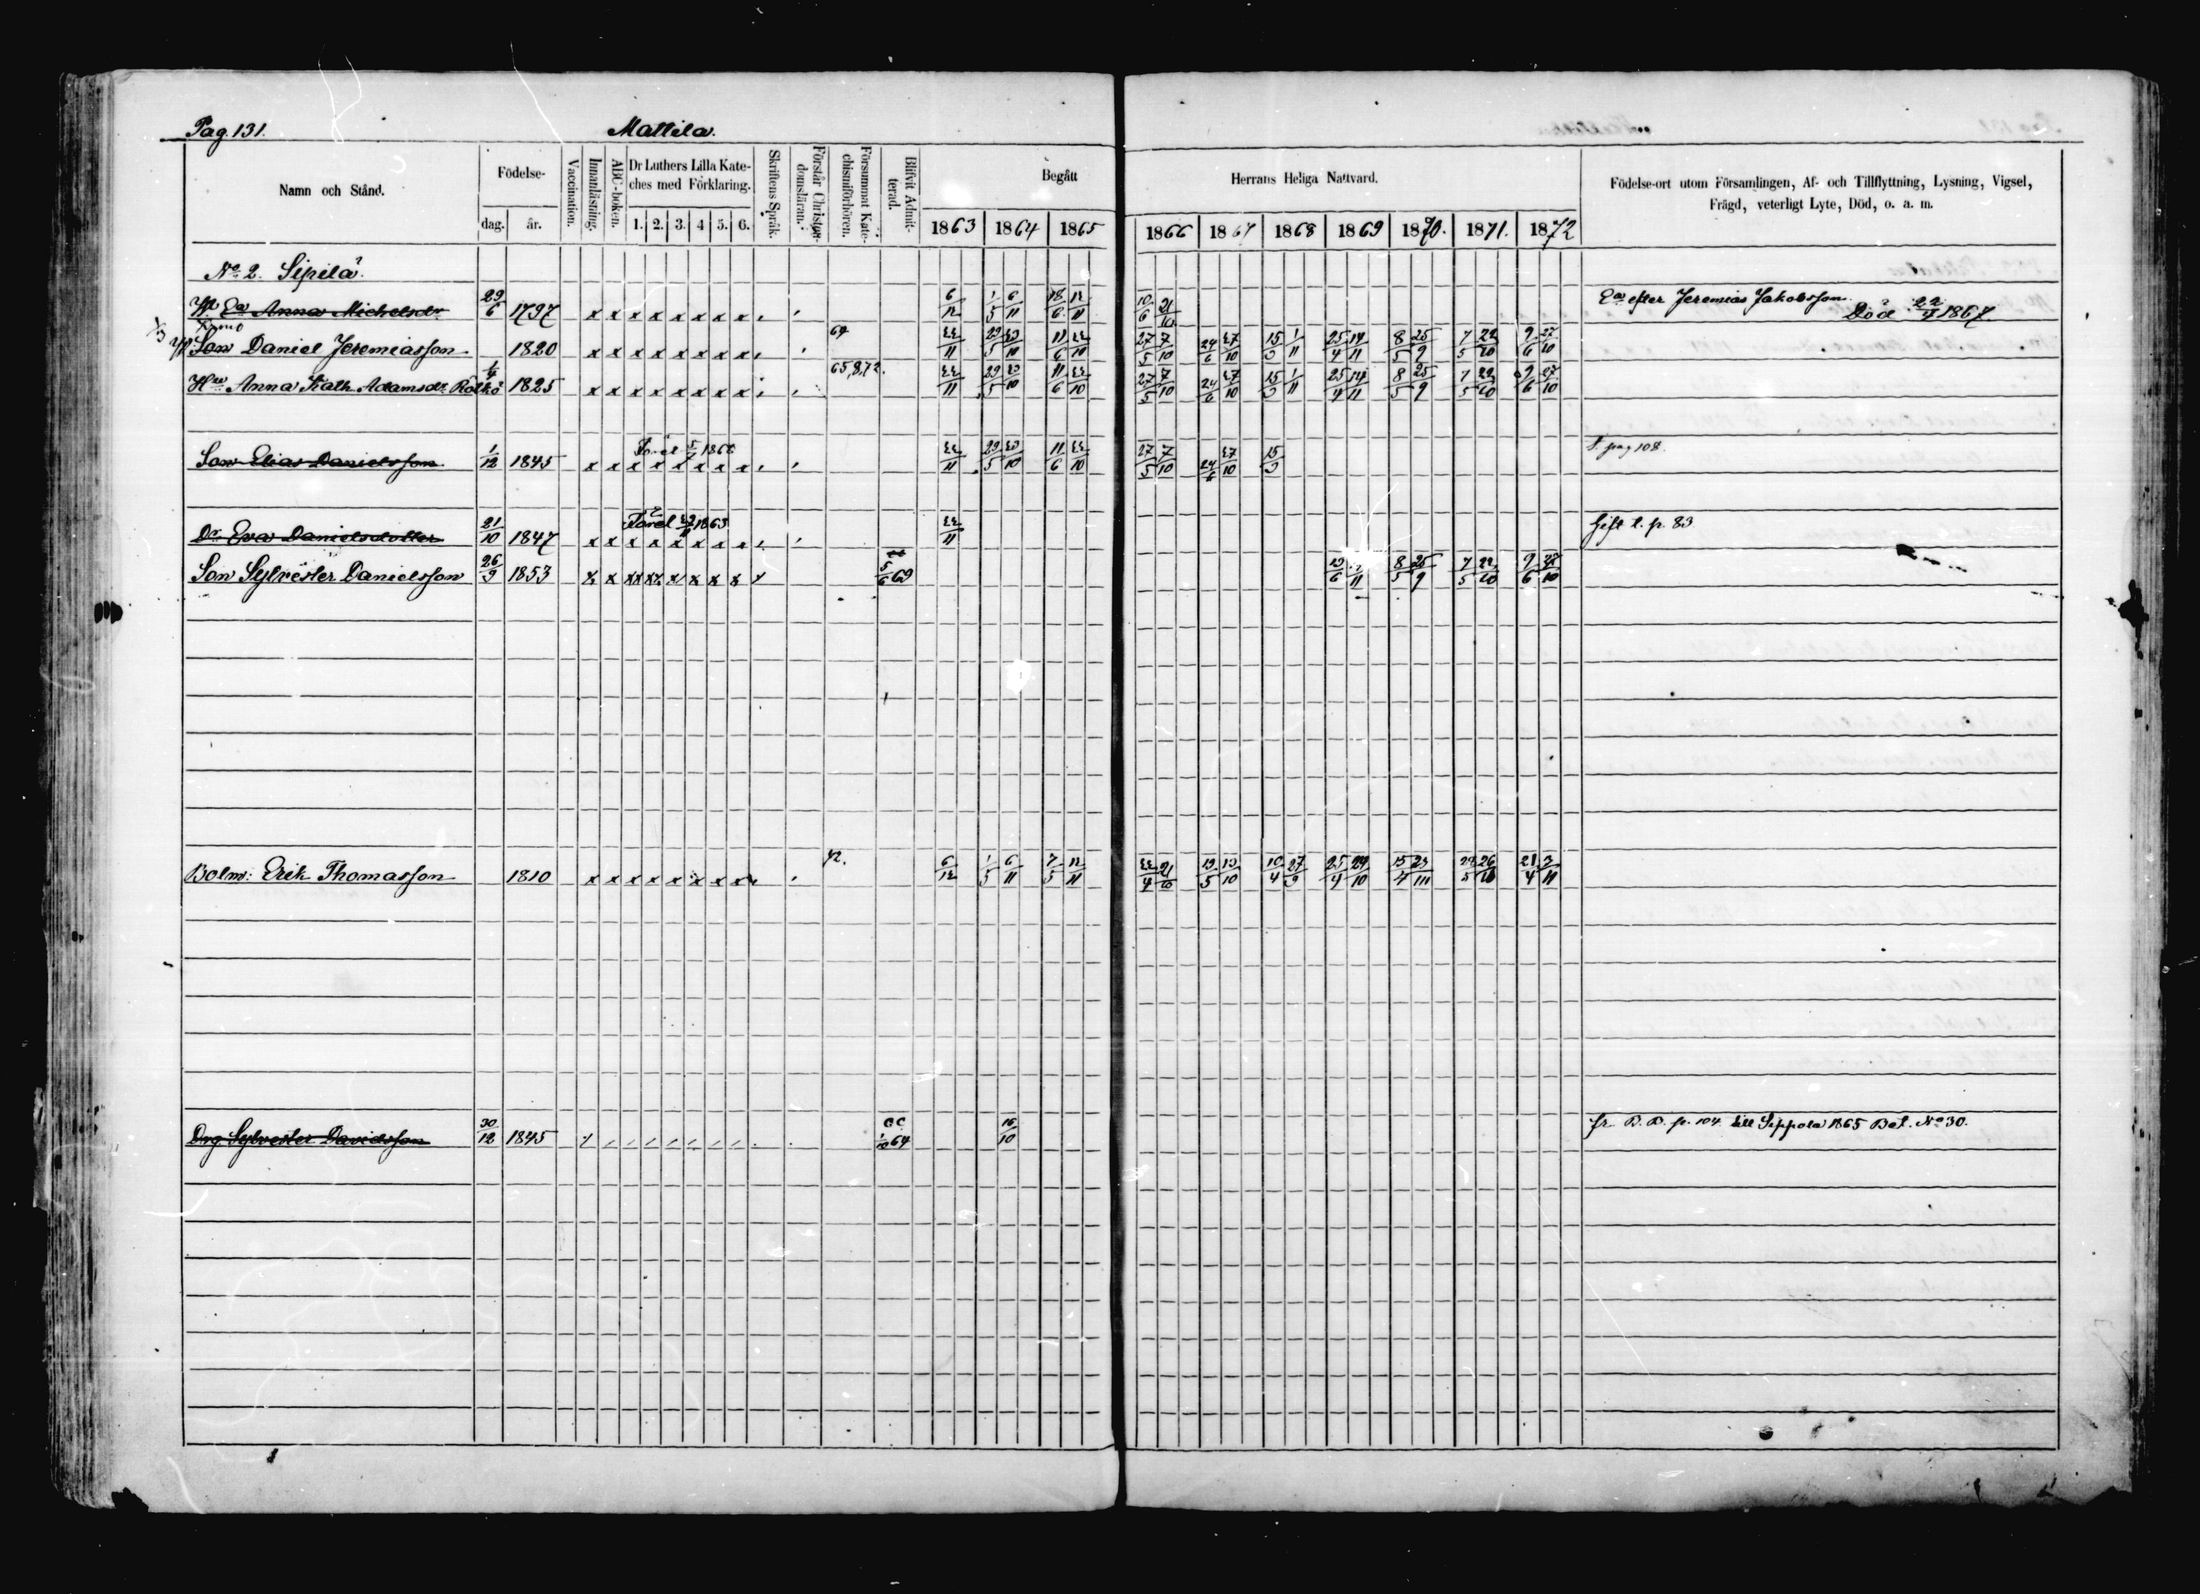 Pag. 131. Mattila.
Namn och Stånd. Födelse- dag. år. Vaccination. Innanläsning. ABC-boken. Dr Luthers Lilla Kateches med Förklaring. 1. 2. 3. 4 5. 6. Skriftens Språk. Förstår Christendomsläran. Försummat Katechismiförhören. Blifvit Admitterad. Begått Herrans Heliga Nattvard. Födelse-ort utom Församlingen, Af- och Tillflyttning, Lysning, Vigsel, Frägd, veterligt Lyte, Död, o. a. m.
1863 1864 1865 1866 1867 1868 1869 1870. 1871. 1872
No 2. Sipilä.
Ea Anna Michelsdr 29/6 1797 x x x x x x x x 6/12 1/5 6/11 18/6 12/11 10/6 21/10 Ea efter Jeremias Jakobsson. Död 22/4 1867.
Son Daniel Jeremiasson 1820 x x x x x x x x 64 22/11 29/5 23/10 11/6 22/10 27/5 7/10 24/6 27/10 15/3 1/11 25/4 14/11 8/5 25/9 7/5 22/10 9/6 27/10
Hu Anna Kath. Adamsdr Rötkö 1/4 1825 x x x x x x x x 65,8,72. 22/11 29/5 23/10 11/6 22/10 27/5 7/10 24/6 27/10 15/3 1/11 25/4 14/11 8/5 25/9 7/5 22/10 9/6 27/10
Son Elias Danielsson 1/12 1845 x x x x x x x x 22/11 29/5 23/10 11/6 22/10 27/5 7/10 24/6 27/10 15/3 t. pag 108.
Dr Eva Danielsdotter 21/10 1847 x x x x x x x x 22/11 Gift t. p. 83
Son Sylvester Danielsson 26/9 1853 5/6 69 8/5 25/9 7/5 22/10 9/6 27/10
Bolm: Erik Thomasson 1810 x x x x x x x x 72. 6/12 1/5 6/11 7/5 12/11 22/4 21/10 13/5 13/10 10/4 27/9 25/4 24/10 21/4 3/11
Drg Sylvester Davidsson 30/12 1845 64 16/10 fr B. B. p. 104 till Sippola 1865 Bet. No 30.